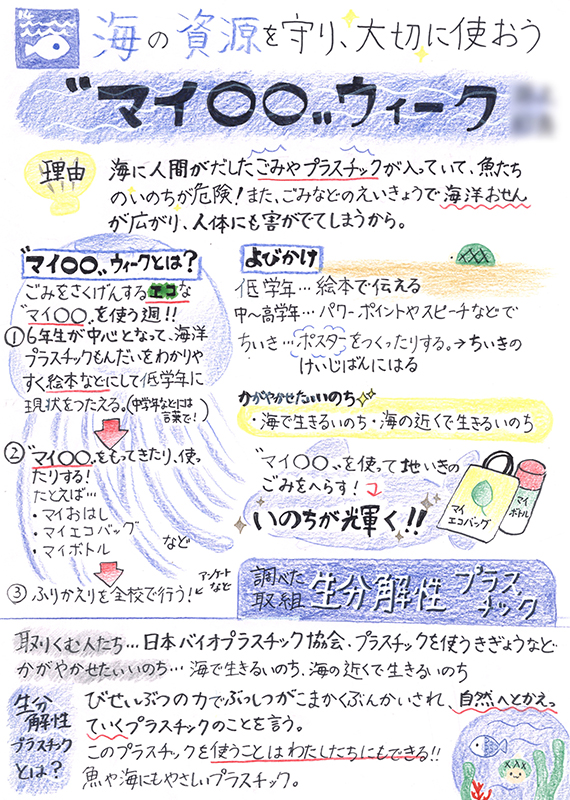 海の資源を守り、大切に使おう
"マイ〇〇"ウィーク
理由
海に人間がだしたごみやプラスチックが入っていて、魚たち
のいのちが危険！また、ごみなどのえいきょうで海洋おせん
が広がり、人体にも害がでてしまうから。
"マイ〇〇"ウィークとは？
ごみをさくげんするエコな
"マイ〇〇"を使う週!!
①6年生が中心となって、海洋
プラスチックもんだいをわかりや
すく絵本などにして低学年に
現状をつたえる。(中学年などには
言葉で！)
②"マイ〇〇"をもってきたり、使っ
たりする！
たとえば…
・マイおはし
・マイエコバッグ
・マイボトル
など
③ふりかえりを全校で行う！
アンケート
など
よびかけ
低学年…絵本で伝える
中〜高学年…パワーポイントやスピーチなどで
ちいき…ポスターをつくったりする。→ちいきの
けいじばんにはる
かがやかせたいいのち
・海で生きるいのち・海の近くで生きるいのち
"マイ〇〇"を使って地いきの
ごみをへらす！
いのちが輝く!!
マイ
エコバッグ
マイ
ボトル
調べた
取組
生分解性プラス
チック
取りくむ人たち…日本バイオプラスチック協会・プラスチックを使うきぎょうなど
かがやかせたいいのち…海で生きるいのち、海の近くで生きるいのち
生分
解性
プラスチック
とは？
びせいぶつの力でぶっしつがこまかくぶんかいされ、自然へとかえっ
ていくプラスチックのことを言う。
このプラスチックを使うことはわたしたちにもできる!!
魚や海にもやさしいプラスチック。